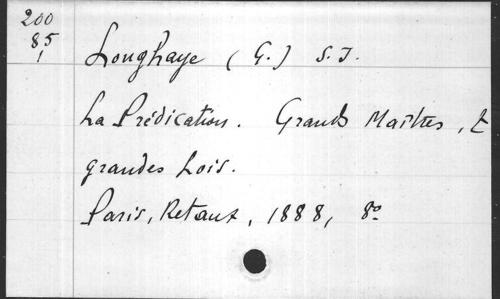 200
85
1
Longhaye (G.) S.J.
La Prédication. Grands Maîtres, et
grandes Lois.
Paris, Retaux, 1888, 8º